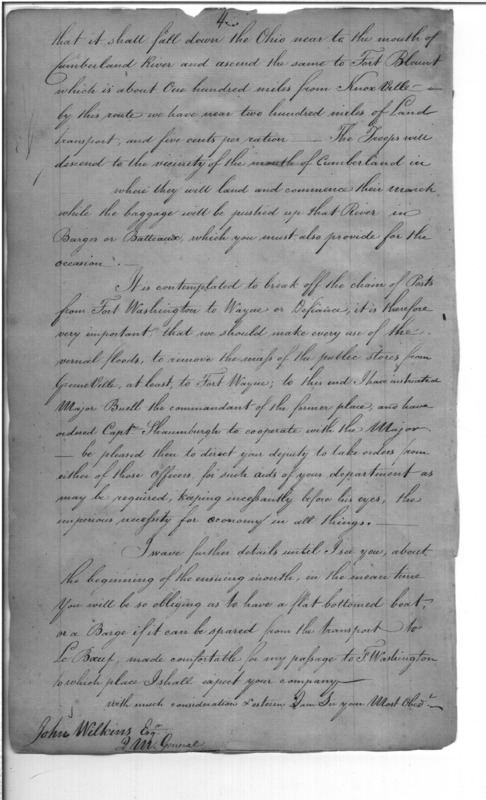 4.
that it shall fall down the Ohio near to the mouth of
Cumberland River and ascend the same to Fort Blount
which is about One hundred miles from Knox Ville —
by this route we have near two hundred miles of Land
transport, and five cents per ration — The Troops will
descend to the vicinity of the mouth of Cumberland in
where they will land and commence their march
while the baggage will be pushed up that River in
Barges or Batteaux, which you must also provide for the
occasion. —
It is contemplated to break off the chain of Posts
from Fort Washington to Wayne or Defiance, it is therefore
very important that we should make every use of the
vernal floods, to remove the mass of the public stores from
Greene Ville, at least, to Fort Wayne; to this end I have instructed
Major Buell the commandant of the former place, and have
ordered Capt. Shaumburgh to cooperate with the Major
— be pleased then to direct your deputy to take orders from
either of those Officers, for such aids of your department as
may be required, keeping incessantly before his eyes, the
imperious necessity for economy in all things. —
I wave further details until I see you, about
the beginning of the ensuing month, in the mean time
You will be so obliging as to have a flat bottomed boat,
or a Barge if it can be spared from the transport to
Le Bœuf, made comfortable for my passage to Ft Washington
to which place I shall expect your company —
with much consideration & esteem I am Sir your Most Obedt
John Wilkins Esqr
Q M. General